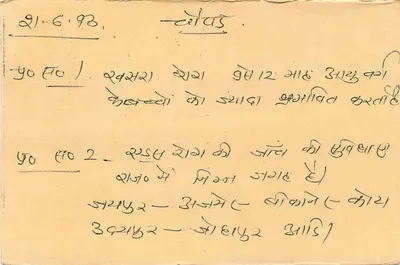 21.6.92. चौपड
प्र० स० 1 खसरा रोग 9 से 12 माह आयु वर्ग
के बच्चों को ज्यादा प्रभावित करता है
प्र० स० 2 - एड्स रोग की जाँच की सुविधाए
राज० में निम्न जगह है।
जयपुर - अजमेर बीकानेर कोटा
उदयपुर - जोधपुर आदि।